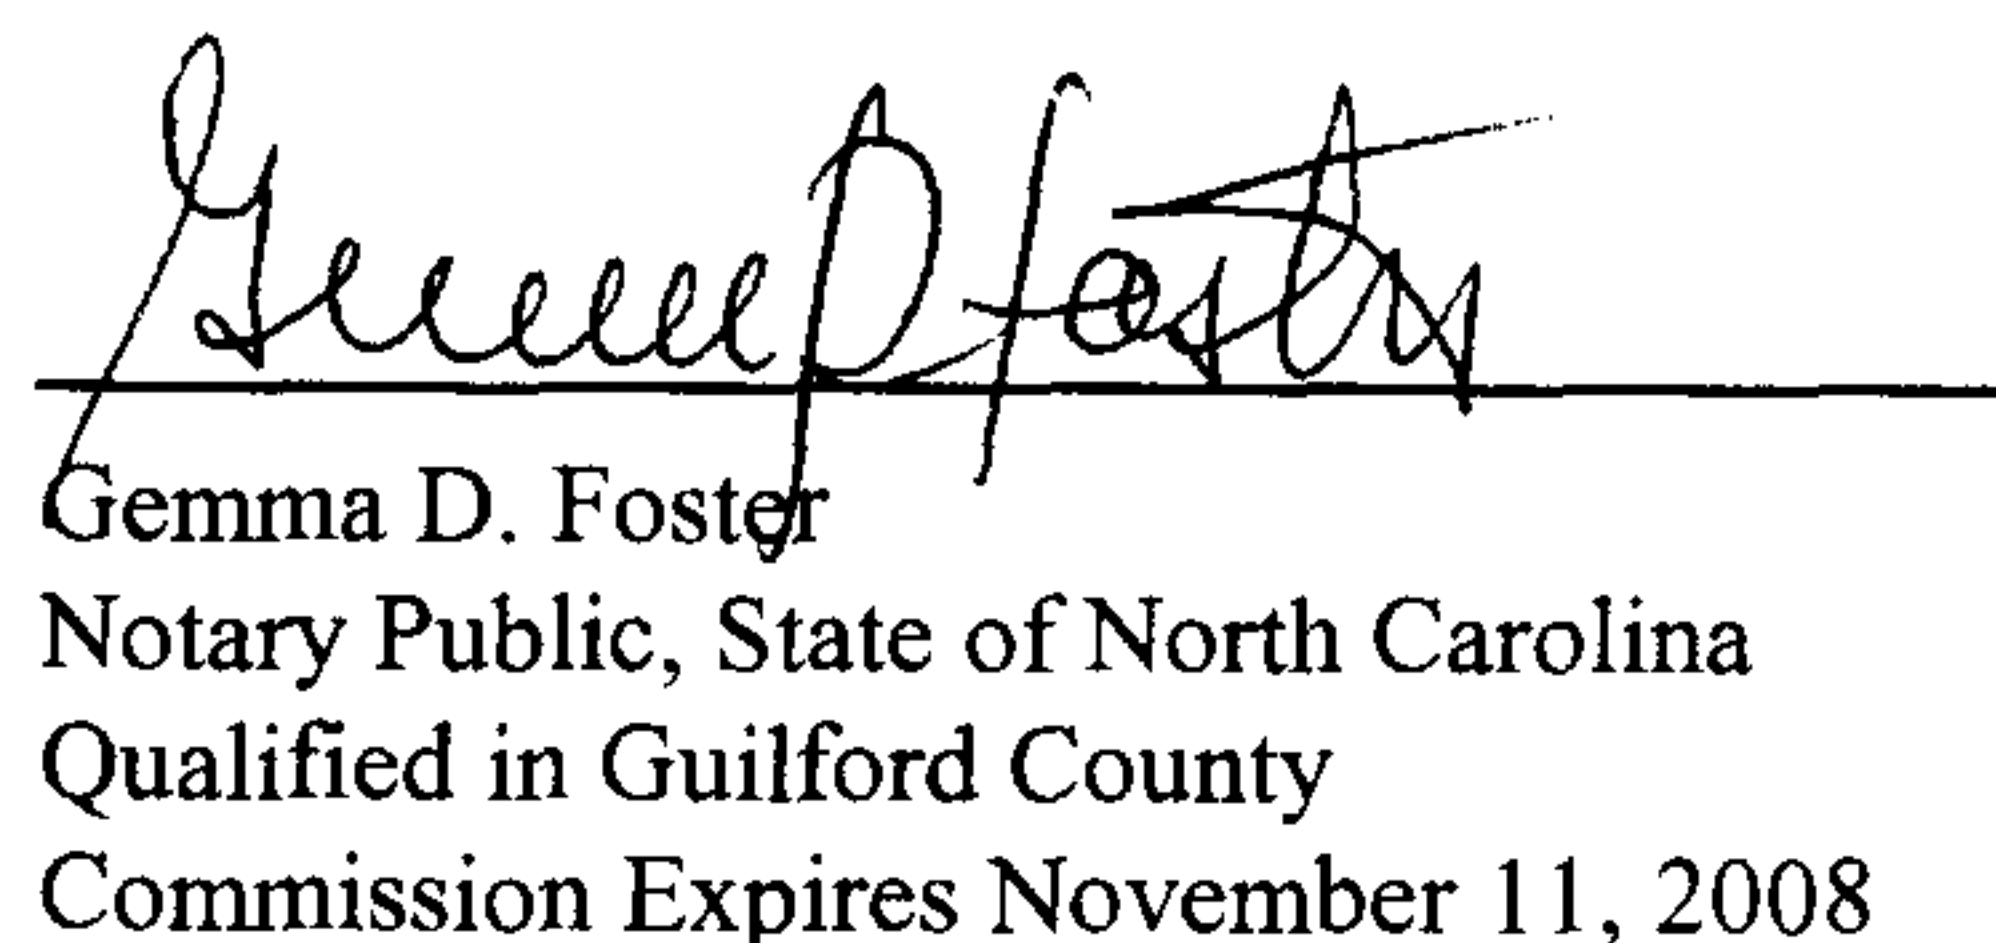 Gemma D Foster
Gemma D. Foster
Notary Public, State of North Carolina
Qualified in Guilford County
Commission Expires November 11, 2008